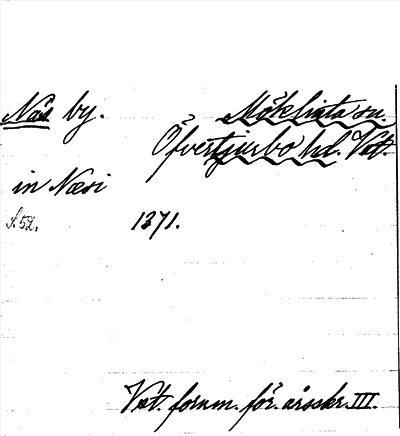 Näs by. Möklinta sn.
Öfvertjurbo hd. Vst.
in Næsi
S. 52. 1371.
Vst. fornm. för. årsskr. III.